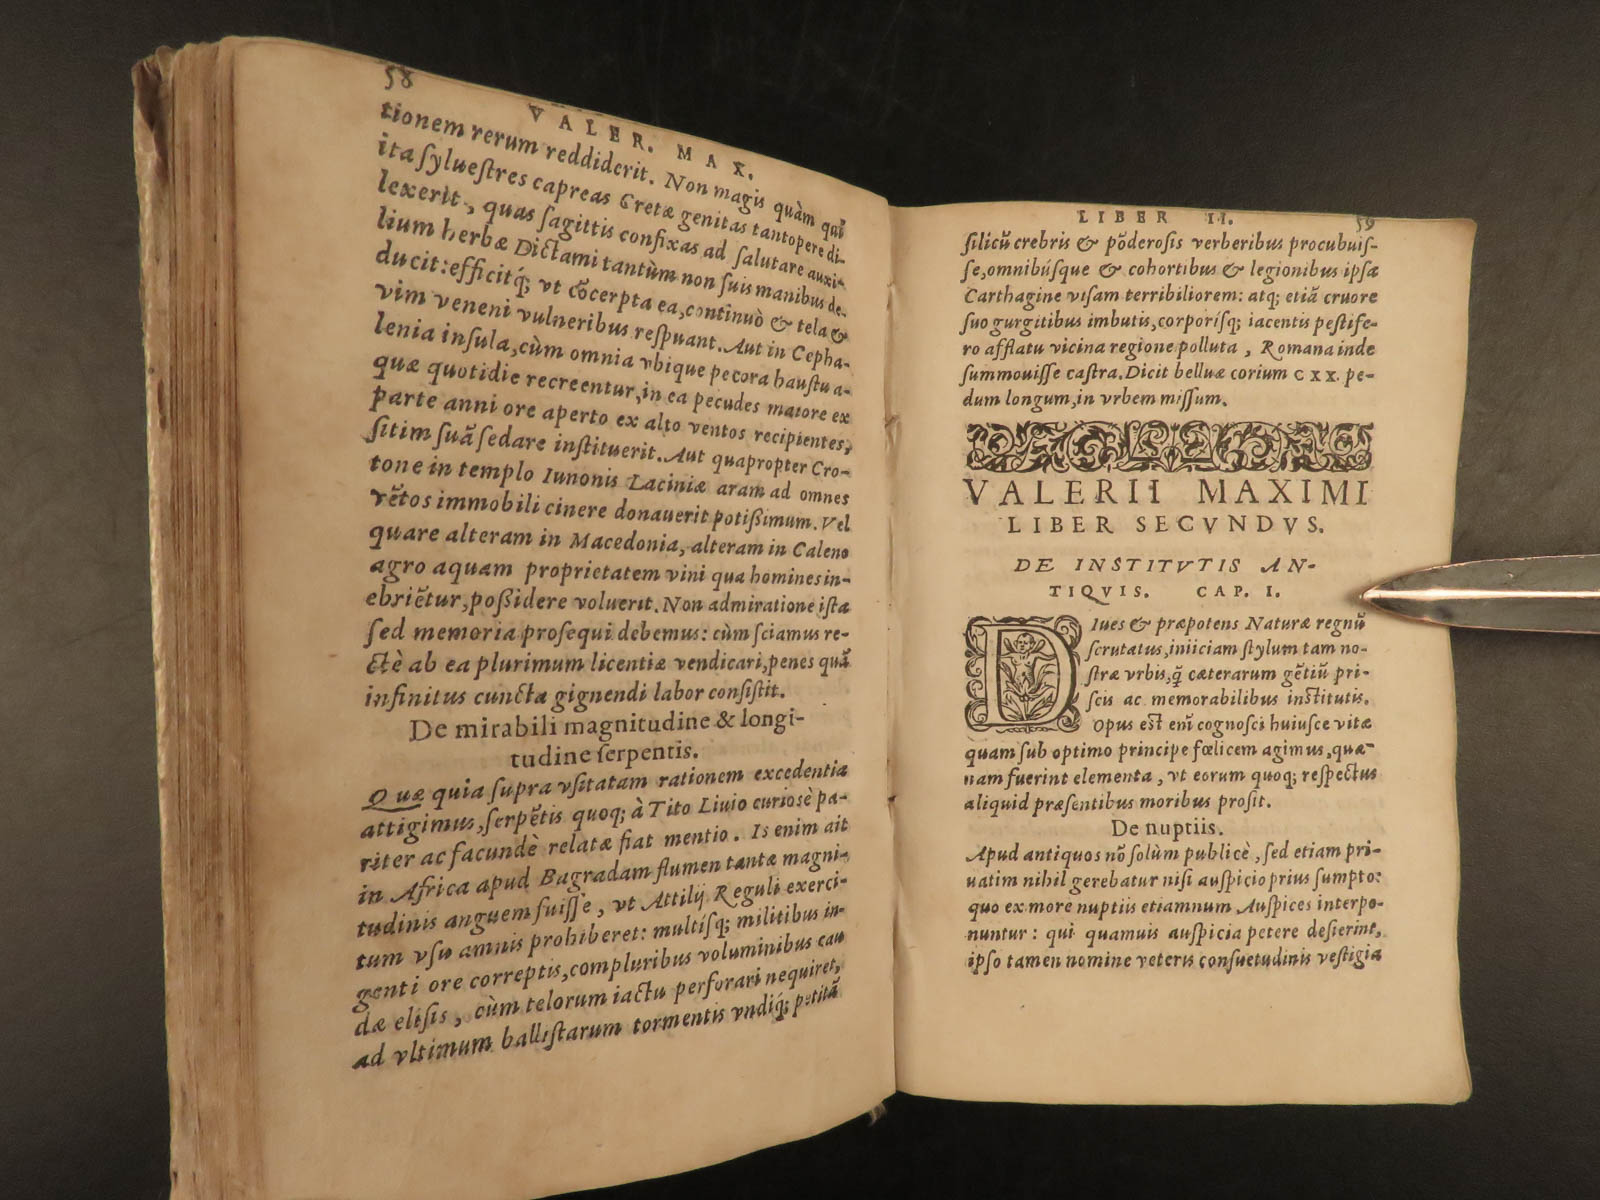 58
VALER. MAX.
tionem rerum reddiderit. Non magis quàm quî
ita sylueſtres capreas Cretæ genitas tantopere di-
lexerit, quas ſagittis confixas ad ſalutare auxi-
lium herbæ Dictami tantùm non ſuis manibus de-
ducit: efficitq́; vt cōcerpta ea, continuò & tela &
vim veneni vulneribus reſpuant. Aut in Cepha-
lenia inſula, cùm omnia vbique pecora hauſtu a-
quæ quotidie recreentur, in ea pecudes maiore ex
parte anni ore aperto ex alto ventos recipientes,
ſitim ſuā ſedare inſtituerit. Aut quapropter Cro-
tone in templo Iunonis Laciniæ aram ad omnes
vētos immobili cinere donauerit potißimum. Vel
quare alteram in Macedonia, alteram in Caleno
agro aquam proprietatem vini qua homines in-
ebriētur, poßidere voluerit. Non admiratione iſta
ſed memoria proſequi debemus: cùm ſciamus re-
ctè ab ea plurimum licentiæ vendicari, penes quā
infinitus cunctæ gignendi labor conſiſtit.
De mirabili magnitudine & longi-
tudine ſerpentis.
Quæ quia ſupra vſitatam rationem excedentia
attigimus, ſerpētis quoq; à Tito Liuio curiosè pa-
riter ac facundè relatæ fiat mentio. Is enim ait
in Africa apud Bagradam flumen tantæ magni-
tudinis anguem fuiſſe, vt Attilij Reguli exerci-
tum vſu amnis prohiberet: multiſq; militibus in-
genti ore correptis, compluribus voluminibus cau
dæ eliſis, cùm telorum iactu perforari nequiret,
ad vltimum balliſtarum tormentis vndiq́; petitā
LIBER II. 59
ſilicū crebris & pōderoſis verberibus procubuiſ-
ſe, omnibúſque & cohortibus & legionibus ipſa
Carthagine viſam terribiliorem: atq; etiā cruore
ſuo gurgitibus imbutis, corporíſq; iacentis peſtife-
ro afflatu vicina regione polluta, Romana inde
ſummouiſſe caſtra. Dicit belluæ corium CXX. pe-
dum longum, in vrbem miſſum.
VALERII MAXIMI
LIBER SECVNDVS.
DE INSTITVTIS AN-
TIQVIS. CAP. I.
DIues & præpotens Naturæ regnū
ſcrutatus, iniiciam ſtylum tam no-
ſtræ vrbis, q̄ cæterarum gētiū pri-
ſcis ac memorabilibus inſtitutis.
Opus eſt enī cognoſci huiuſce vitæ
quam ſub optimo principe fœlicem agimus, quæ-
nam fuerint elementa, vt eorum quoq; reſpectus
aliquid præſentibus moribus proſit.
De nuptiis.
Apud antiquos nō ſolùm publicè, ſed etiam pri-
uatim nihil gerebatur niſi auſpicio prius ſumpto:
quo ex more nuptiis etiamnum Auſpices interpo-
nuntur: qui quamuis auſpicia petere deſierint,
ipſo tamen nomine veteris conſuetudinis veſtigia